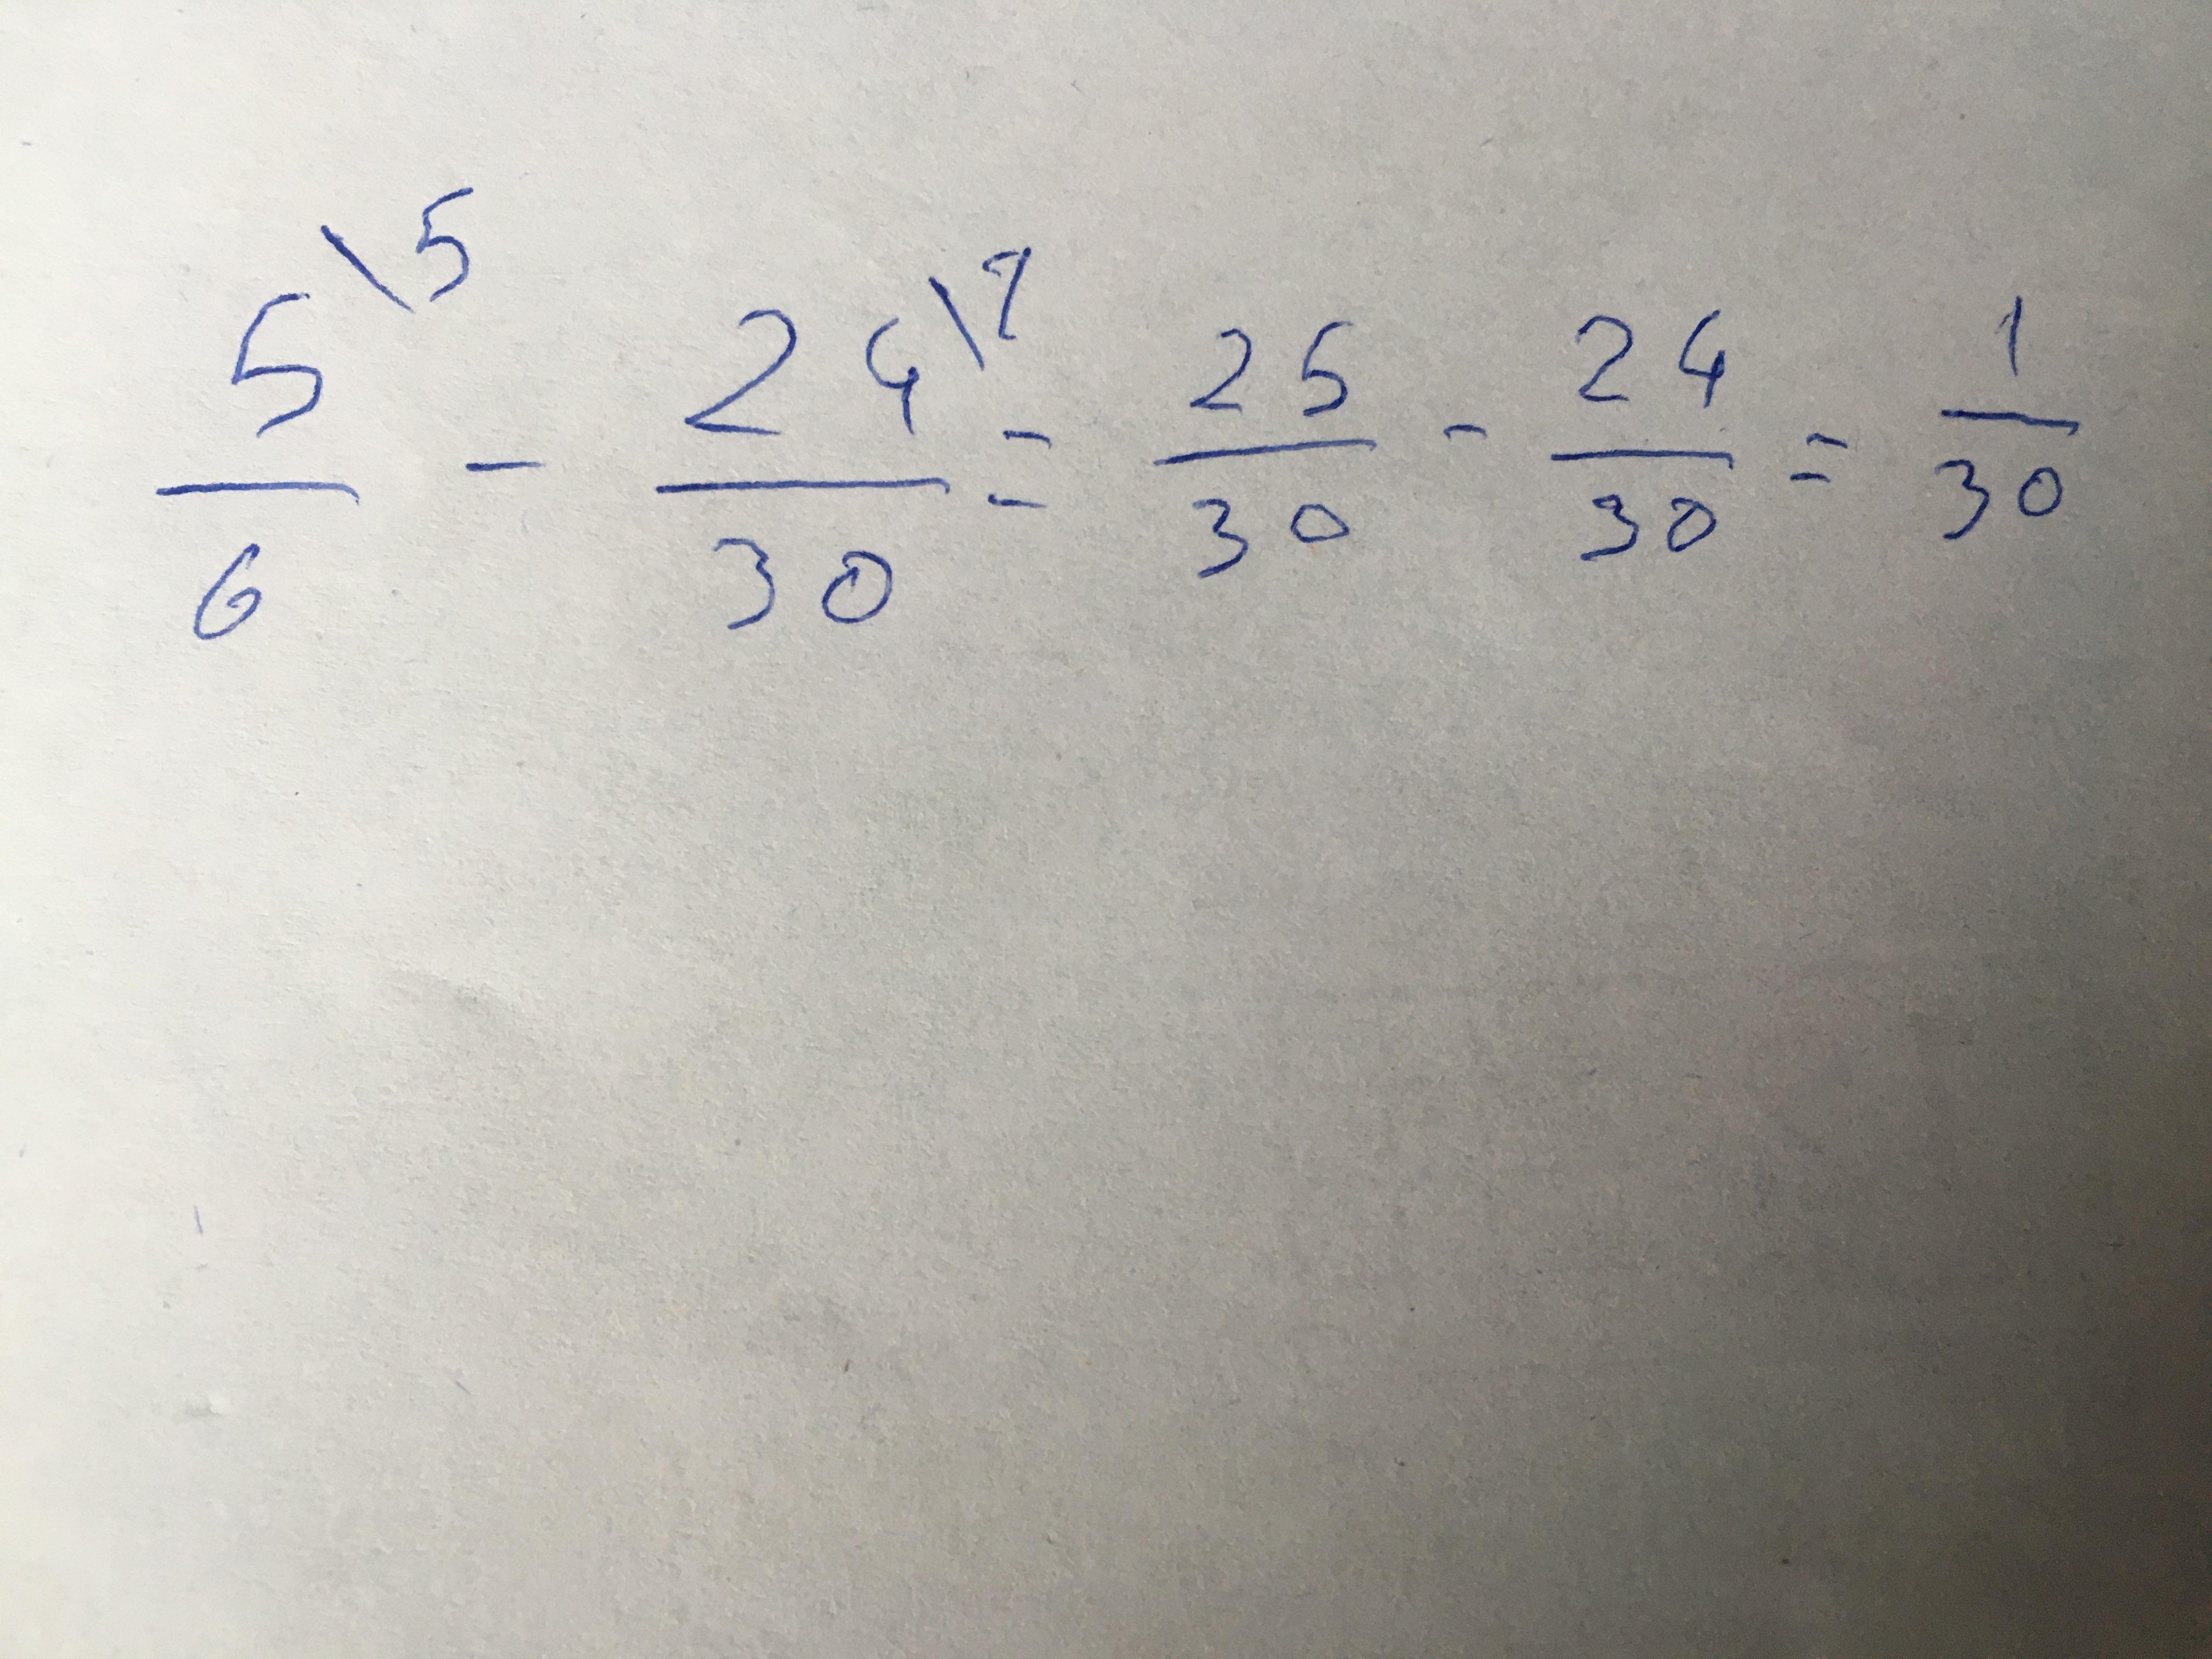 5/6 \5 - 24/30 \1 = 25/30 - 24/30 = 1/30